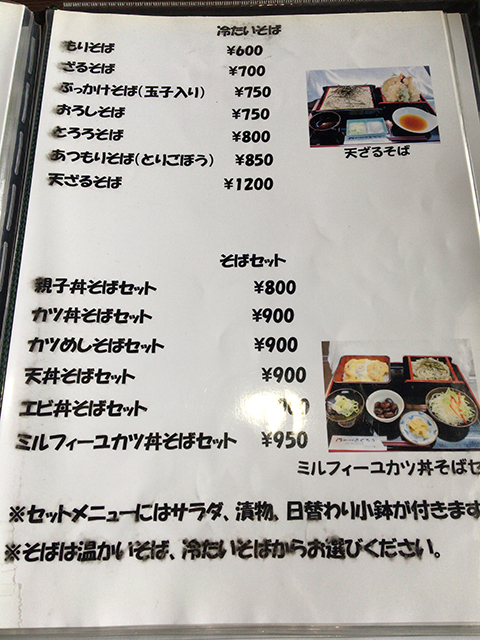 冷たいそば
もりそば ¥600
ざるそば ¥700
ぶっかけそば(玉子入り) ¥750
おろしそば ¥750
とろろそば ¥800
あつもりそば(とりごぼう) ¥850
天ざるそば ¥1200
天ざるそば
そばセット
親子丼そばセット ¥800
カツ丼そばセット ¥900
カツめしそばセット ¥900
天丼そばセット ¥900
エビ丼そばセット
ミルフィーユカツ丼そばセット ¥950
ミルフィーユカツ丼そばセ
※セットメニューにはサラダ、漬物、日替わり小鉢が付きます
※そばは温かいそば、冷たいそばからお選びください。